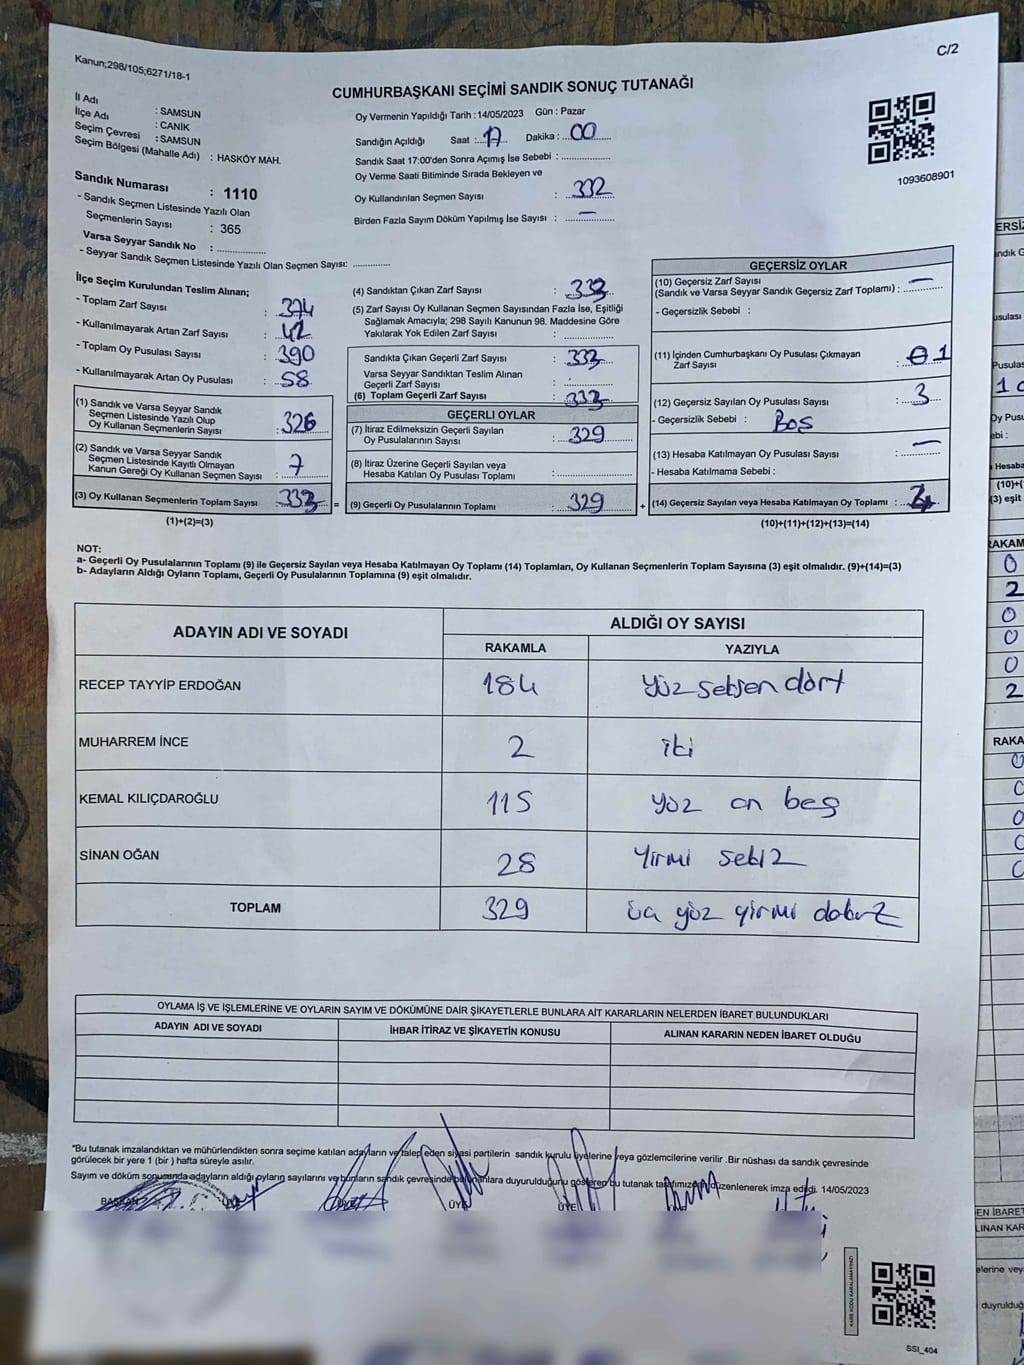 Kanun;298/105;6271/18-1
C/2
CUMHURBAŞKANI SEÇİMİ SANDIK SONUÇ TUTANAĞI
İl Adı : SAMSUN
İlçe Adı : CANİK
Seçim Çevresi : SAMSUN
Seçim Bölgesi (Mahalle Adı) : HASKÖY MAH.
Sandık Numarası : 1110
- Sandık Seçmen Listesinde Yazılı Olan
Seçmenlerin Sayısı : 365
Varsa Seyyar Sandık No : ................
- Seyyar Sandık Seçmen Listesinde Yazılı Olan Seçmen Sayısı: ............
Oy Vermenin Yapıldığı Tarih : 14/05/2023 Gün : Pazar
Sandığın Açıldığı Saat : 17 Dakika : 00
Sandık Saat 17:00'den Sonra Açımış İse Sebebi : ................
Oy Verme Saati Bitiminde Sırada Bekleyen ve
Oy Kullandırılan Seçmen Sayısı : 332
Birden Fazla Sayım Döküm Yapılmış İse Sayısı : —
1093608901
İlçe Seçim Kurulundan Teslim Alınan;
- Toplam Zarf Sayısı : 374
- Kullanılmayarak Artan Zarf Sayısı :
- Toplam Oy Pusulası Sayısı : 390
- Kullanılmayarak Artan Oy Pusulası : 58
(1) Sandık ve Varsa Seyyar Sandık
Seçmen Listesinde Yazılı Olup
Oy Kullanan Seçmenlerin Sayısı : 326
(2) Sandık ve Varsa Seyyar Sandık
Seçmen Listesinde Kayıtlı Olmayan
Kanun Gereği Oy Kullanan Seçmen Sayısı : 7
(3) Oy Kullanan Seçmenlerin Toplam Sayısı : 333 =
(1)+(2)=(3)
(4) Sandıktan Çıkan Zarf Sayısı : 333
(5) Zarf Sayısı Oy Kullanan Seçmen Sayısından Fazla İse, Eşitliği
Sağlamak Amacıyla; 298 Sayılı Kanunun 98. Maddesine Göre
Yakılarak Yok Edilen Zarf Sayısı : ................
Sandıkta Çıkan Geçerli Zarf Sayısı : 333
Varsa Seyyar Sandıktan Teslim Alınan
Geçerli Zarf Sayısı :
(6) Toplam Geçerli Zarf Sayısı : 333
GEÇERLİ OYLAR
(7) İtiraz Edilmeksizin Geçerli Sayılan
Oy Pusulalarının Sayısı : 329
(8) İtiraz Üzerine Geçerli Sayılan veya
Hesaba Katılan Oy Pusulası Toplamı : ................
(9) Geçerli Oy Pusulalarının Toplamı : 329 +
GEÇERSİZ OYLAR
(10) Geçersiz Zarf Sayısı
(Sandık ve Varsa Seyyar Sandık Geçersiz Zarf Toplamı) : —
- Geçersizlik Sebebi :
(11) İçinden Cumhurbaşkanı Oy Pusulası Çıkmayan
Zarf Sayısı : 1
(12) Geçersiz Sayılan Oy Pusulası Sayısı : 3
- Geçersizlik Sebebi : Boş
(13) Hesaba Katılmayan Oy Pusulası Sayısı : —
- Hesaba Katılmama Sebebi :
(14) Geçersiz Sayılan veya Hesaba Katılmayan Oy Toplamı : 4
(10)+(11)+(12)+(13)=(14)
NOT:
a- Geçerli Oy Pusulalarının Toplamı (9) ile Geçersiz Sayılan veya Hesaba Katılmayan Oy Toplamı (14) Toplamları, Oy Kullanan Seçmenlerin Toplam Sayısına (3) eşit olmalıdır. (9)+(14)=(3)
b- Adayların Aldığı Oyların Toplamı, Geçerli Oy Pusulalarının Toplamına (9) eşit olmalıdır.
ADAYIN ADI VE SOYADI ALDIĞI OY SAYISI
RAKAMLA YAZIYLA
RECEP TAYYİP ERDOĞAN 184 yüz seksen dört
MUHARREM İNCE 2 iki
KEMAL KILIÇDAROĞLU 115 yüz on beş
SİNAN OĞAN 28 yirmi sekiz
TOPLAM 329 üç yüz yirmi dokuz
OYLAMA İŞ VE İŞLEMLERİNE VE OYLARIN SAYIM VE DÖKÜMÜNE DAİR ŞİKAYETLERLE BUNLARA AİT KARARLARIN NELERDEN İBARET BULUNDUKLARI
ADAYIN ADI VE SOYADI İHBAR İTİRAZ VE ŞİKAYETİN KONUSU ALINAN KARARIN NEDEN İBARET OLDUĞU
*Bu tutanak imzalandıktan ve mühürlendikten sonra seçime katılan adayların ve talep eden siyasi partilerin sandık kurulu üyelerine veya gözlemcilerine verilir .Bir nüshası da sandık çevresinde
görülecek bir yere 1 (bir ) hafta süreyle asılır.
Sayım ve döküm sonucunda adayların aldığı oyların sayılarını ve bunların sandık çevresinde duyurulduğunu gösterep bu tutanak tarafımızdan düzenlenerek imza edildi. 14/05/2023
BAŞKAN ÜYE ÜYE ÜYE ÜYE
KARE KODU KARALAMAYINIZ!
SSI_404